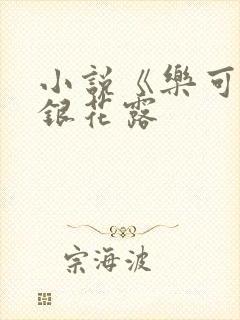 小說《樂可
銀花露
宗海波